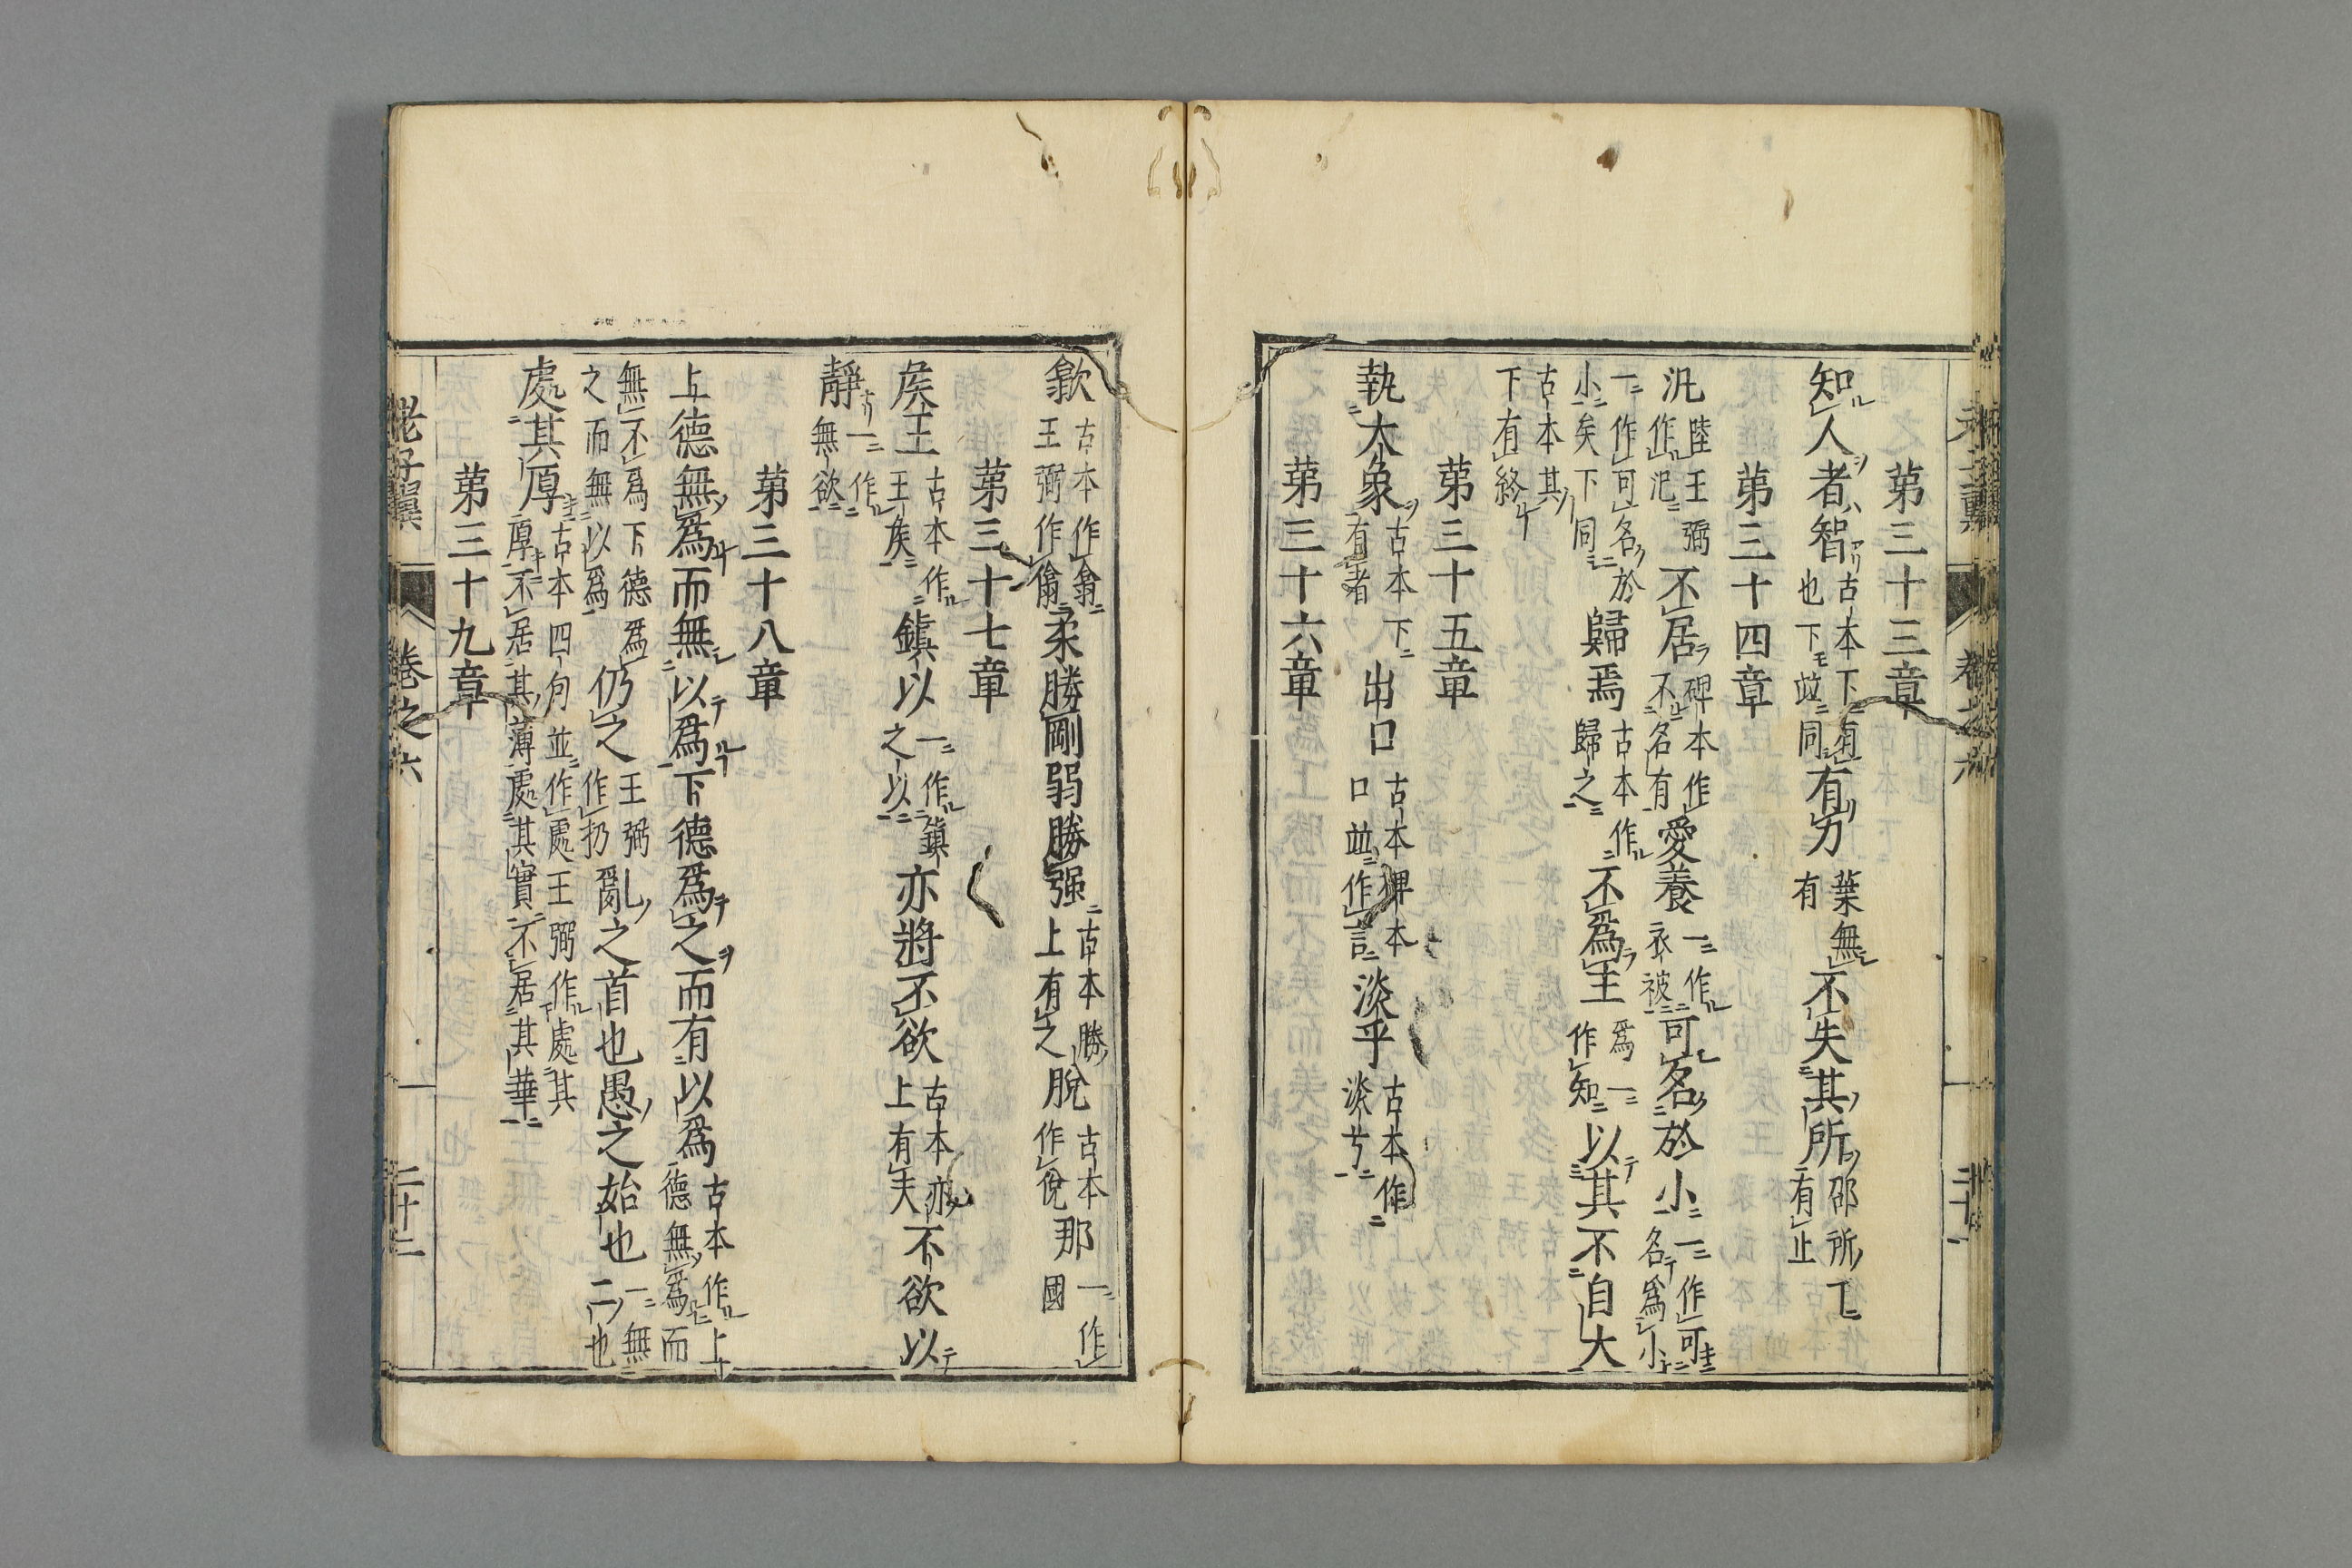 第三十三章
知人者智古本下有也下並同有力葉無有不失其所邵所下有止
第三十四章
汎陸王弼作氾不居碑本作不名有愛養一作衣被可名於小一作可名為小
一作可名於小矣下同歸焉古本作歸之不為主為一作知以其不自大
古本其下有終
第三十五章
執大象古本下有者出口古本碑本口並作言淡乎古本作淡兮
第三十六章
歙古本作翕王弼作偹柔勝剛弱勝强古本勝上有之脫古本作侻那一作國
第三十七章
矦王古本作王矦鎮以一作鎮之以亦將不欲古本亦上有夫不欲以
靜一作無欲
第三十八章
上德無為而無以為下德為之而有以為古本作上德無為而
無不為下德為之而無以為仍之王弼作扔亂之首也愚之始也一無二也
處其厚古本四句並作處王弼作處其厚不居其薄處其實不居其華
第三十九章
老子翼 卷之六 二十二